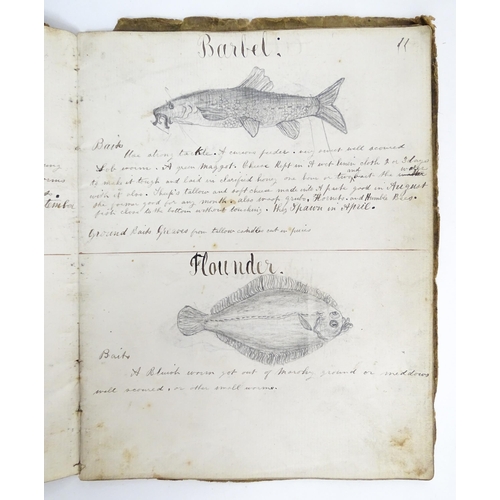 Barbel:
11
Baits
Use strong tackle. A curious feeder. any sweet well scoured
Lob worm. A green Maggot. Cheese kept in a wet linen cloth 2 or 3 days
to make it tough and laid in clarified honey one hour or two and bait the
with it also. Sheep's tallow and soft cheese made into A paste good in August
the former good for any month. also wasp grubs. Hornets. and Humble Bees.
fish close to the bottom without touching. They Spawn in April.
Ground Baits Greaves from tallow candles cut in pieces
tember
Flounder.
Baits
A Redish worm got out of Marshy ground or meddows
well scoured. or other small worms.